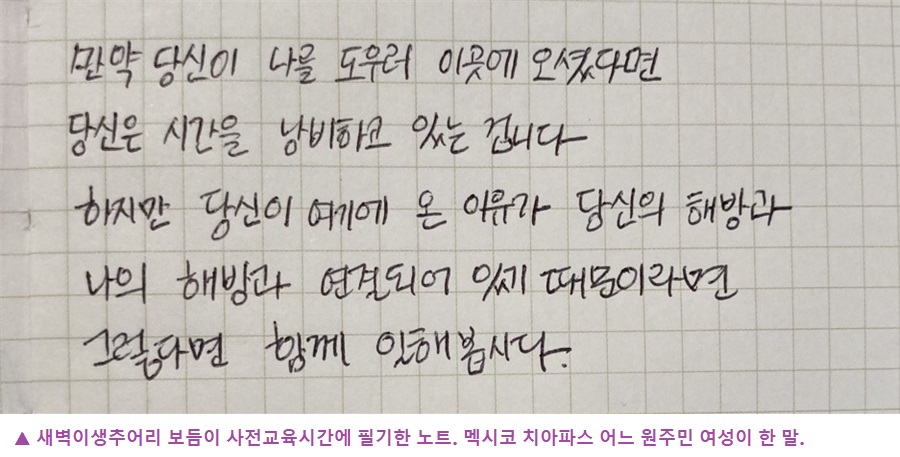 만약 당신이 나를 도우러 이곳에 오셨다면
당신은 시간을 낭비하고 있는 겁니다
하지만 당신이 여기에 온 이유가 당신의 해방과
나의 해방과 연결되어 있기 때문이라면
그렇다면 함께 일해봅시다.
▲ 새벽이생추어리 보듬이 사전교육시간에 필기한 노트. 멕시코 치아파스 어느 원주민 여성이 한 말.